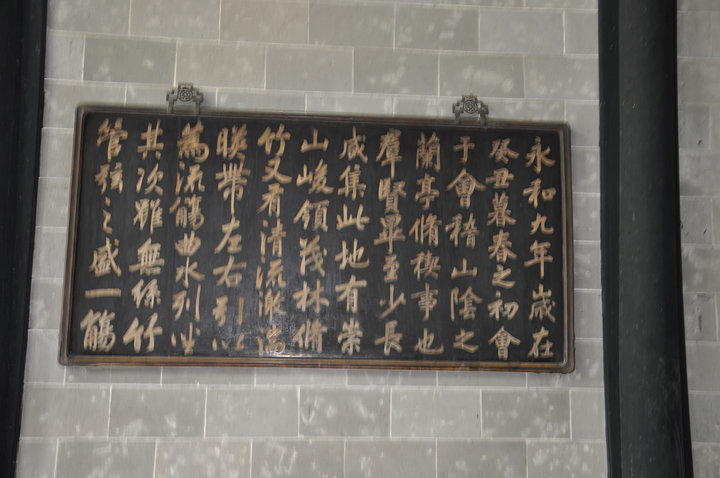 永和九年歲在
癸丑暮春之初會
于會稽山陰之
蘭亭脩稧事也
羣賢畢至少長
咸集此地有崇
山峻領茂林脩
竹又有清流激湍
暎帶左右引以
爲流觴曲水列坐
其次雖無絲竹
管弦之盛一觴